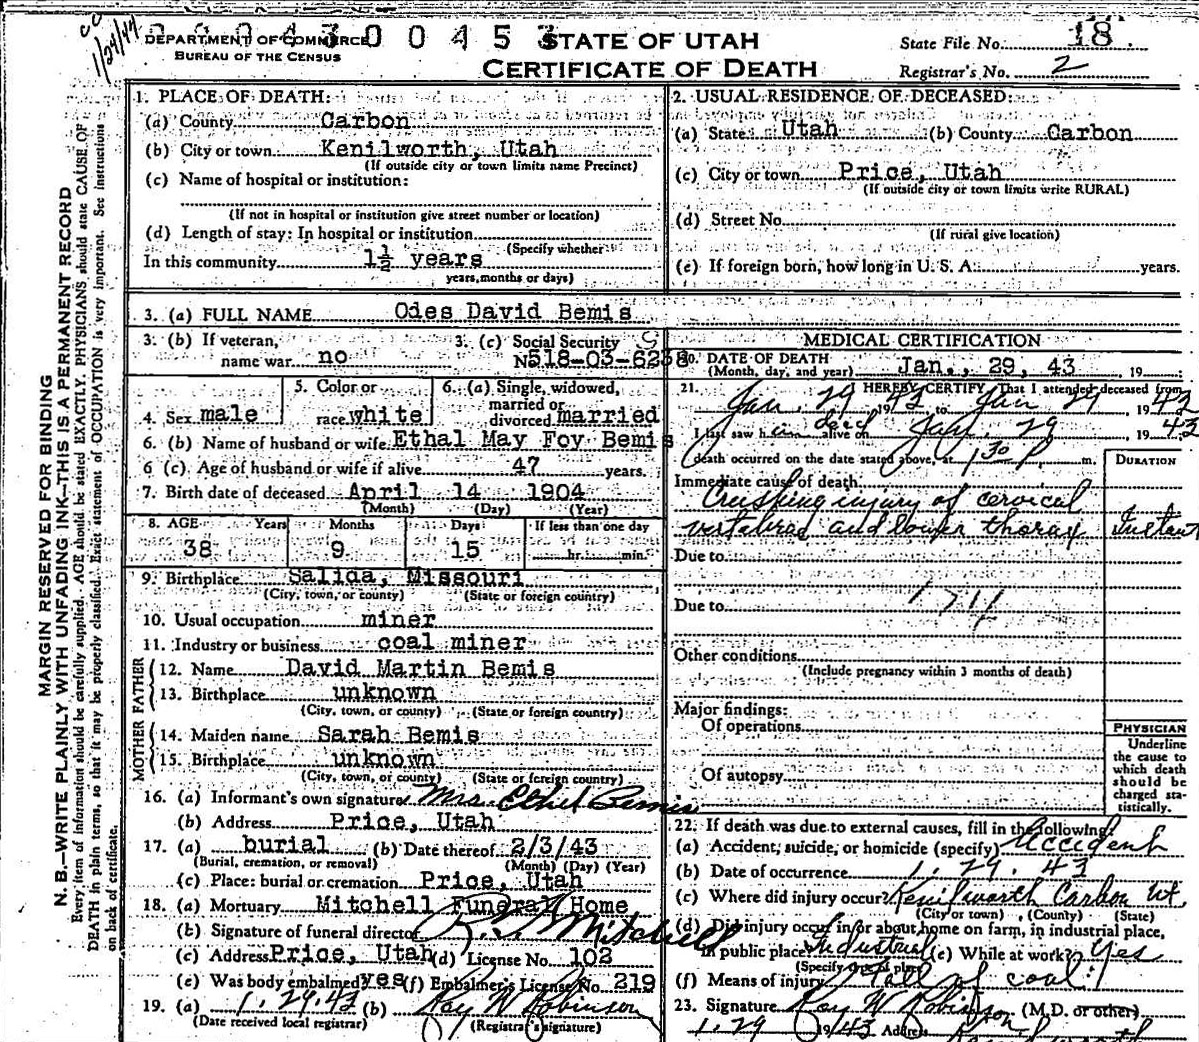 00430 0453
DEPARTMENT OF COMMERCE
BUREAU OF THE CENSUS
1/29/44
STATE OF UTAH
CERTIFICATE OF DEATH
State File No. 18
Registrar's No. 2
MARGIN RESERVED FOR BINDING
N. B.—WRITE PLAINLY WITH UNFADING INK—THIS IS A PERMANENT RECORD
Every item of information should be carefully supplied. AGE should be stated EXACTLY. PHYSICIANS should state CAUSE OF
DEATH in plain terms, so that it may be properly classified. Exact statement of OCCUPATION is very important. See Instructions
on back of certificate.
1. PLACE OF DEATH:
(a) County Carbon
(b) City or town Kenilworth, Utah
(If outside city or town limits name Precinct)
(c) Name of hospital or institution:
(If not in hospital or institution give street number or location)
(d) Length of stay: In hospital or institution
(Specify whether
In this community 1½ years
years, months or days)
2. USUAL RESIDENCE OF DECEASED:
(a) State Utah (b) County Carbon
(c) City or town Price, Utah
(If outside city or town limits write RURAL)
(d) Street No.
(If rural give location)
(e) If foreign born, how long in U. S. A. years.
3. (a) FULL NAME Odes David Bemis
3. (b) If veteran,
name war no
3. (c) Social Security
No 518-03-6238
4. Sex male
5. Color or
race white
6. (a) Single, widowed,
married or
divorced married
6. (b) Name of husband or wife Ethal May Foy Bemis
6 (c). Age of husband or wife if alive 47 years.
7. Birth date of deceased April 14 1904
(Month) (Day) (Year)
8. AGE Years Months Days If less than one day
38 9 15 hr. min.
9. Birthplace Salida, Missouri
(City, town, or county) (State or foreign country)
10. Usual occupation miner
11. Industry or business coal miner
FATHER
12. Name David Martin Bemis
13. Birthplace unknown
(City, town, or county) (State or foreign country)
MOTHER
14. Maiden name Sarah Bemis
15. Birthplace unknown
(City, town, or county) (State or foreign country)
16. (a) Informant's own signature Mrs. Ethel Bemis
(b) Address Price, Utah
17. (a) burial (b) Date thereof 2/3/43
(Burial, cremation, or removal) (Month) (Day) (Year)
(c) Place: burial or cremation Price, Utah
18. (a) Mortuary Mitchell Funeral Home
(b) Signature of funeral director Mitchell
(c) Address Price, Utah (d) License No. 102
(e) Was body embalmed yes (f) Embalmer's License No. 219
19. (a) 1.29.43 (b) Roy W Robinson
(Date received local registrar) (Registrar's signature)
MEDICAL CERTIFICATION
20. DATE OF DEATH Jan., 29, 43, 19
(Month, day, and year)
21. I HEREBY CERTIFY That I attended deceased from
Jan. 29 1943 to Jan 29, 1943
I last saw him dead alive on Jan. 29 1943
death occurred on the date stated above, at 1 30 P. m.
DURATION
Immediate cause of death
Crushing injury of cervical
vertabrae and lower thorax Instant
Due to
Due to
Other conditions
(Include pregnancy within 3 months of death)
Major findings:
Of operations
Of autopsy
PHYSICIAN
Underline
the cause to
which death
should be
charged sta-
tistically.
22. If death was due to external causes, fill in the following:
(a) Accident, suicide, or homicide (specify) Accident
(b) Date of occurrence 1. 29. 43
(c) Where did injury occur? Kenilworth Carbon Ut.
(City or town) (County) (State)
(d) Did injury occur in or about home on farm, in industrial place,
in public place? Industrial (e) While at work? Yes
(Specify type of place)
(f) Means of injury Fall of coal
23. Signature Roy W Robinson (M.D. or other)
1.29 1943 Address Kenilworth